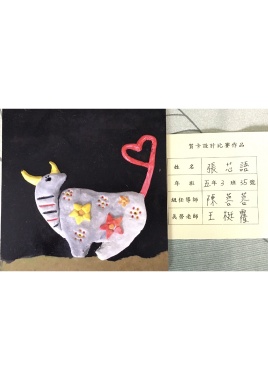 賀卡設計比賽作品
姓名 張芯語
年班 五年3班35號
級任導師 陳蓉蓉
美勞老師 王挺霞